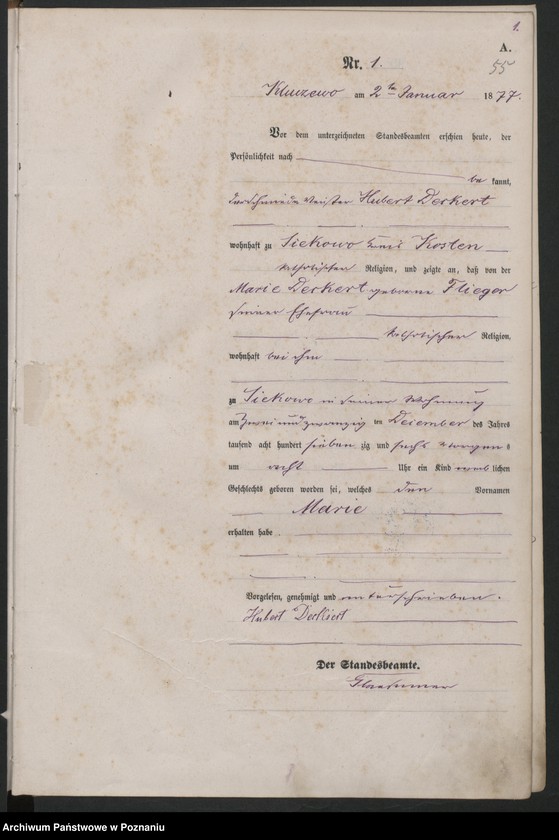 1.
A.
55
Nr. 1.
Kluczewo am 2ten Januar 1877.
Vor dem unterzeichneten Standesbeamten erschien heute, der
Persönlichkeit nach
be kannt,
Hubert Derkert
wohnhaft zu Siekowo Kreis Kosten
katholischer Religion, und zeigte an, daß von der
Marie Derkert geborene Flieger
seiner Ehefrau
katholischer Religion,
wohnhaft bei ihm
zu Siekowo in seiner Wohnung
am zwei und zwanzig ten Dezember des Jahres
tausend acht hundert sieben zig und sechs Morgens
um acht Uhr ein Kind weiblichen
Geschlechts geboren worden sei, welches den Vornamen
Marie
erhalten habe
Vorgelesen, genehmigt und unterschrieben.
Hubert Derkiert
Der Standesbeamte.
Archiwum Państwowe w Poznaniu